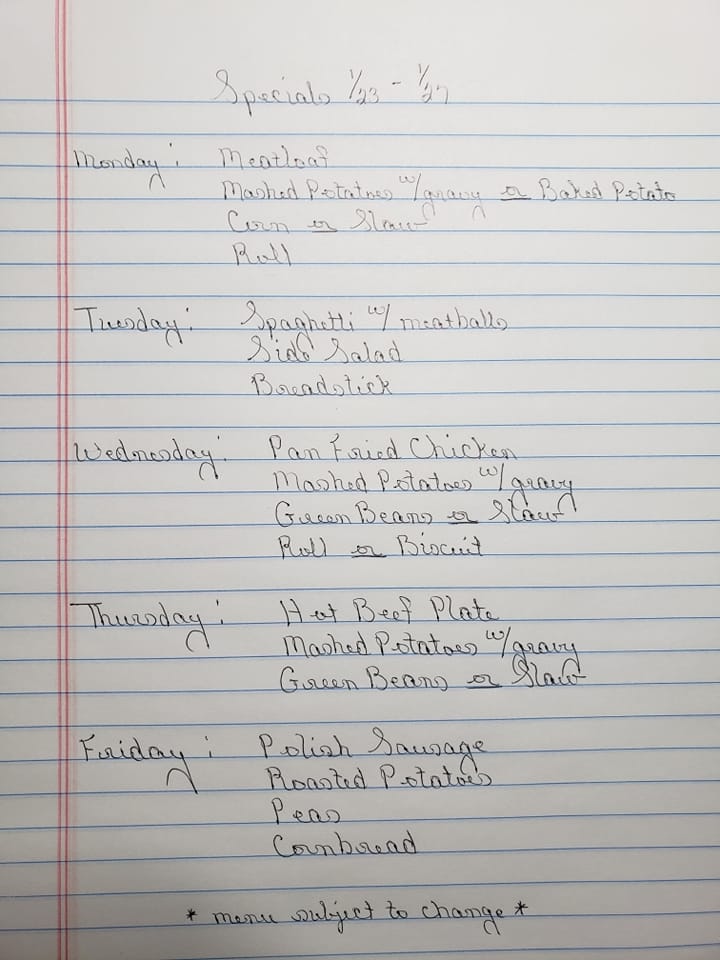 Specials 1/23 - 1/27
Monday: Meatloaf
Mashed Potatoes w/gravy or Baked Potato
Corn or Slaw
Roll
Tuesday: Spaghetti w/ meatballs
Side Salad
Breadstick
Wednesday: Pan Fried Chicken
Mashed Potatoes w/gravy
Green Beans or Slaw
Roll or Biscuit
Thursday: Hot Beef Plate
Mashed Potatoes w/gravy
Green Beans or Slaw
Friday: Polish Sausage
Roasted Potatoes
Peas
Cornbread
* menu subject to change *